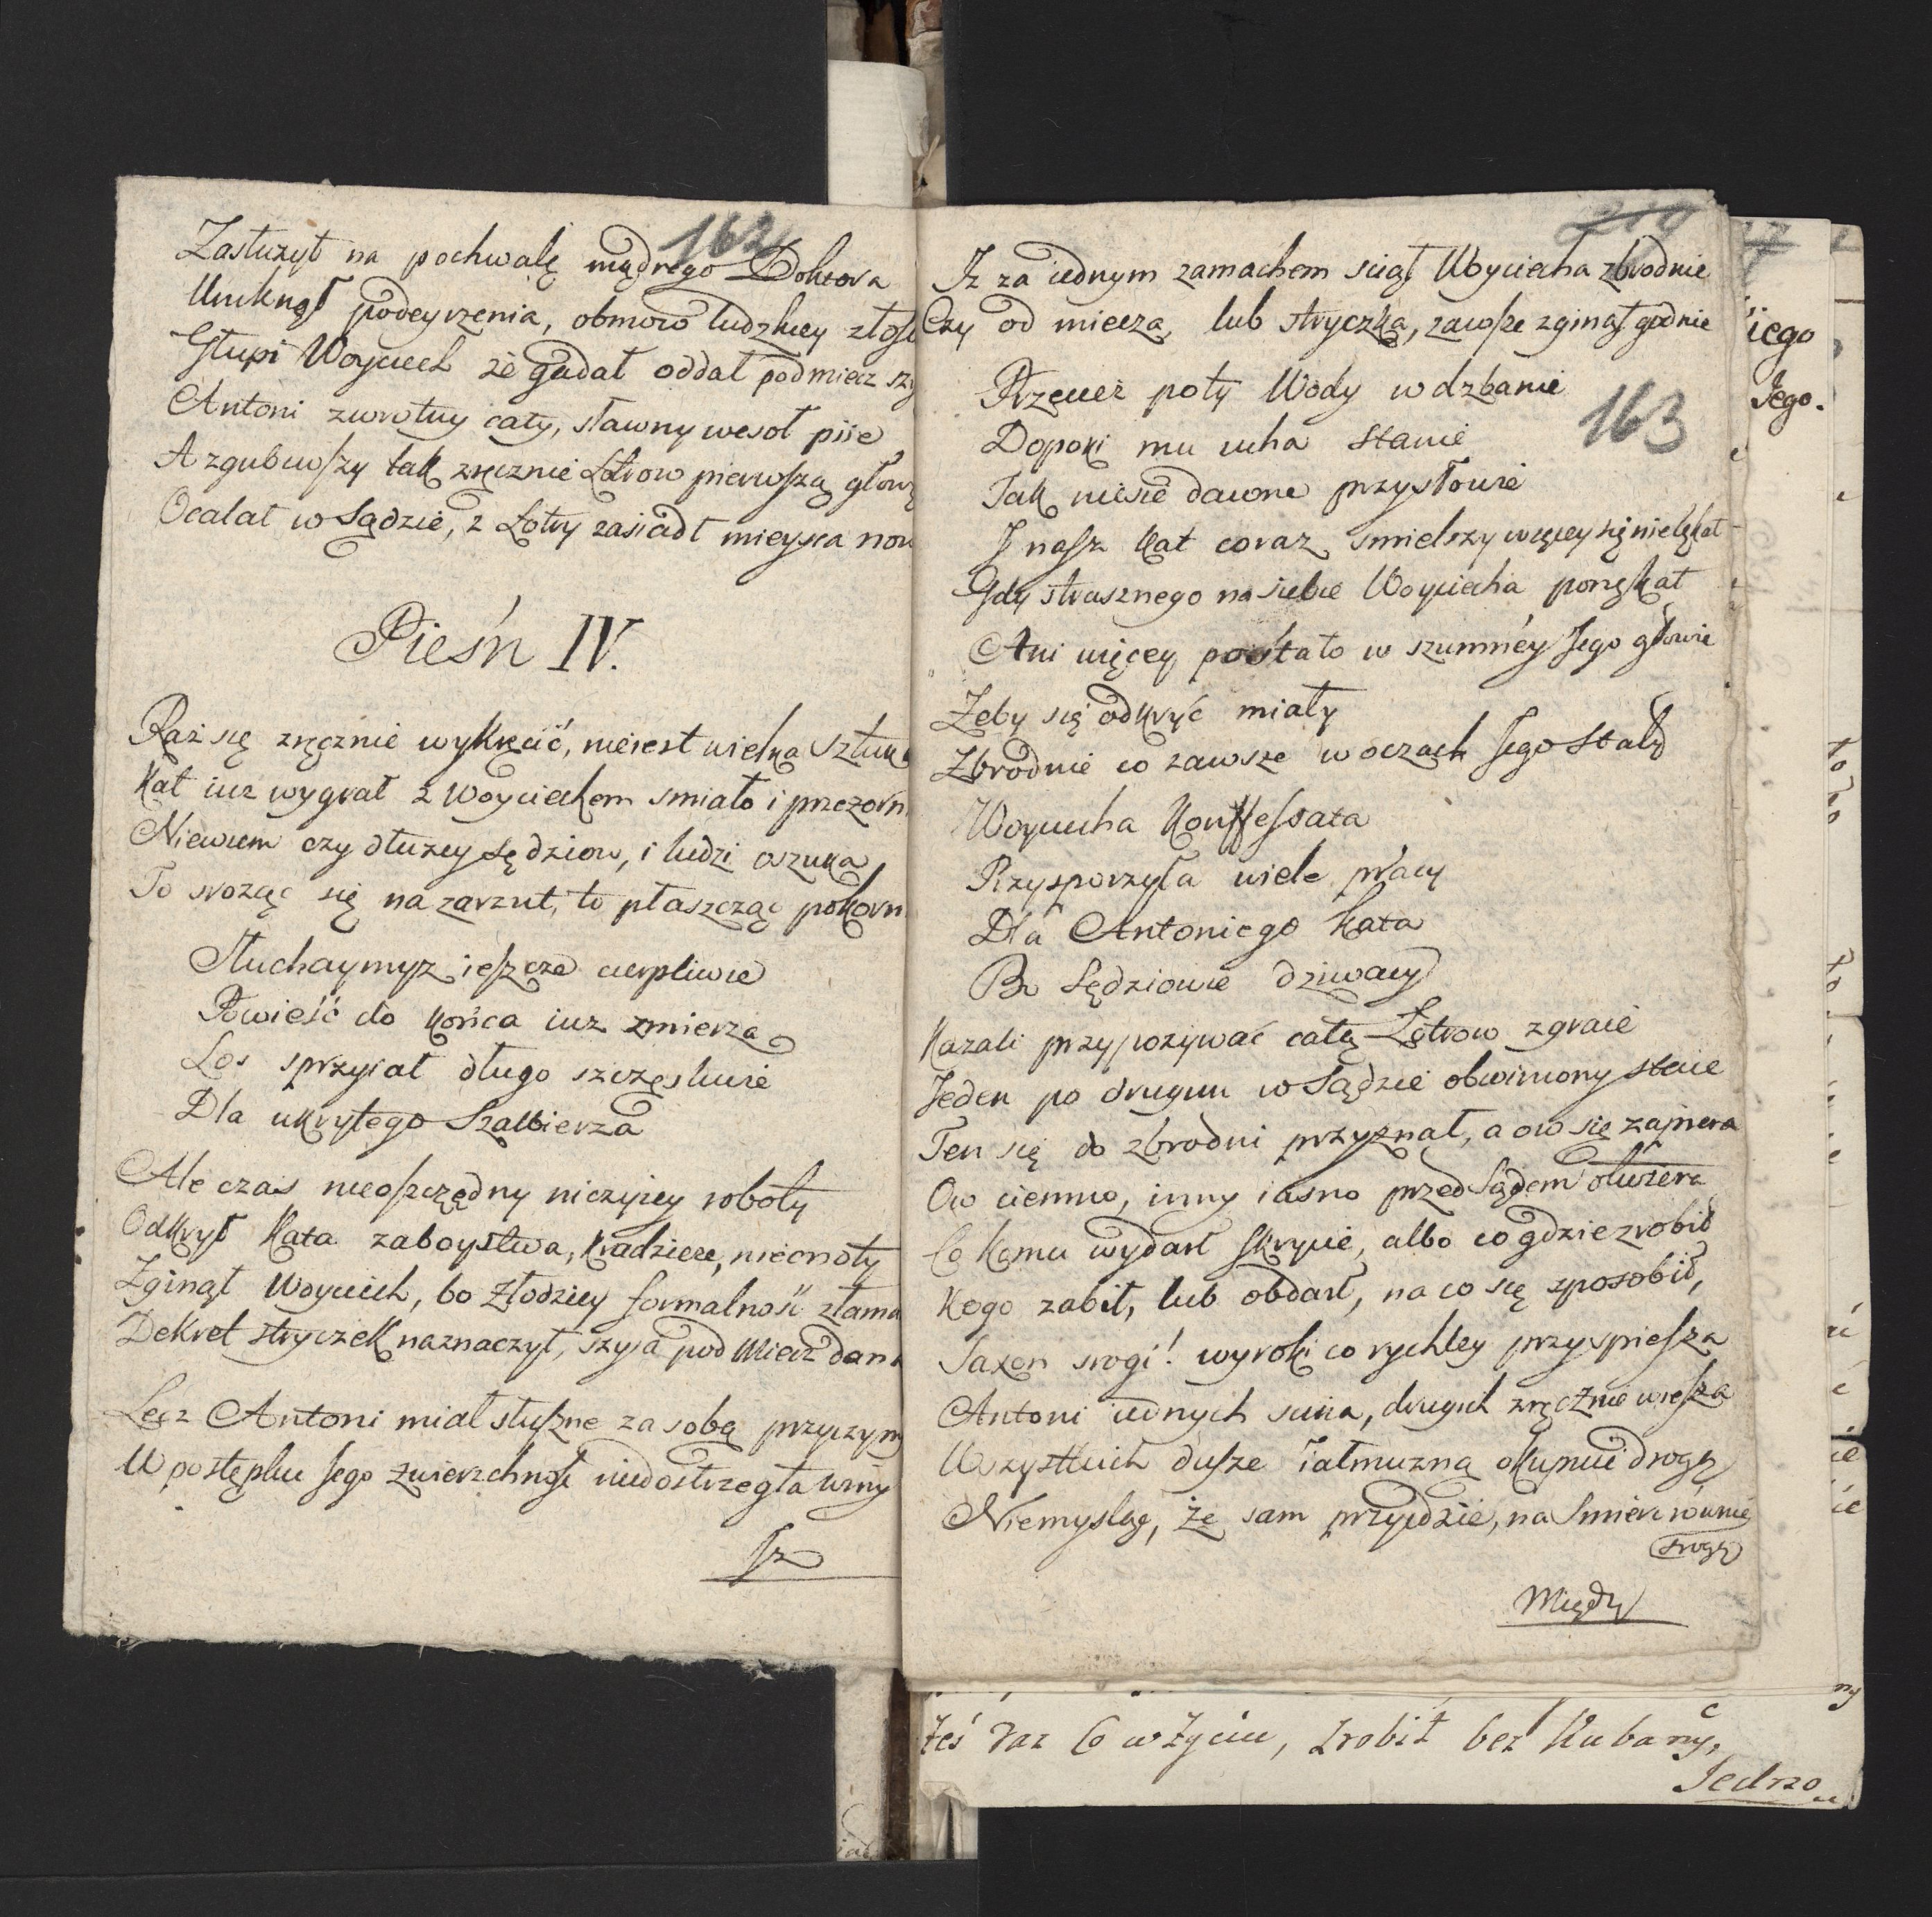 162
Zasłużył na pochwałę mądrego Doktora
Uniknął podeyrzenia, obmow ludzkiey złoś
Głupi Woyciech że gadał oddał pod miecz szy
Antoni zwrotny cały, sławny wesoł piie
A zgubiwszy tak zręcznie Łotrow pierwszą głow
Ocalał w Sądzie, z Łotry zasiadł mieysca now
Pieśń IV.
Raz się zręcznie wykręcić, nie iest wielka sztuk
Kat iuz wygrał z Woyciechem smiało i przezorn
Niewiem czy dłuzey sędziow, i ludzi oszuka
To srożąc się na zarzut, to płaszcząc pokorn
Słuchaymyz ieszcze cierpliwie
Powieść do końca iuz zmierza
Los sprzyiał długo szczęsliwie
Dla ukrytego Szalbierza
Ale czas nieoszczędny niczyiey roboty
Odkrył Kata zaboystwa, kradzieze, niecnoty
Zginął Woyciech, bo złodziey formalność złama
Dekret stryczek naznaczył, szyia pod miecz dan
Lecz Antoni miał słuszne za sobą przyczyn
W postępku Jego zwierzchność niedostrzegła winy
Iz
219
Iz za iednym zamachem sciął Woyciecha zbrodnie
Czy od miecza, lub stryczka, zawsze zginął godnie
163
Przecież poty Wody w dzbanie
Dopoki mu ucha stanie
Tak niesie dawne przysłowie
I nasz Kat coraz smielszy więcey się nielękał
Gdy strasznego na siebie Woyciecha ponękał
Ani więcey postało w szumney Jego głowie
Zeby się odkryć miały
Zbrodnie co zawsze w oczach Jego stały
Woyciecha Konffessata
Przysporzyła wiele pracy
Dla Antoniego Kata
Bo Sędziowie dziwacy
Kazali przypozywać całą Łotrow zgraie
Jeden po drugim w Sądzie obwiniony staie
Ten się do zbrodni przyznał, a ow się zapiera
Ow ciemno, inny iasno przed Sądem otwiera
Co komu wydarł skrycie, albo co gdzie zrobił
Kogo zabił, lub obdarł, na co się sposobił,
Saxon srogi! wyroki co rychley przyspiesza
Antoni iednych scina, drugich zręcznie wiesza
Wszystkich dusze iałmuzną okupuie drogę
Niemysląc, że sam przyidzie, na Smierc rownie
srogę
Między
iego
Jego.
żeś raz Co w Życiu, zrobił bez Kubany,
Jedno